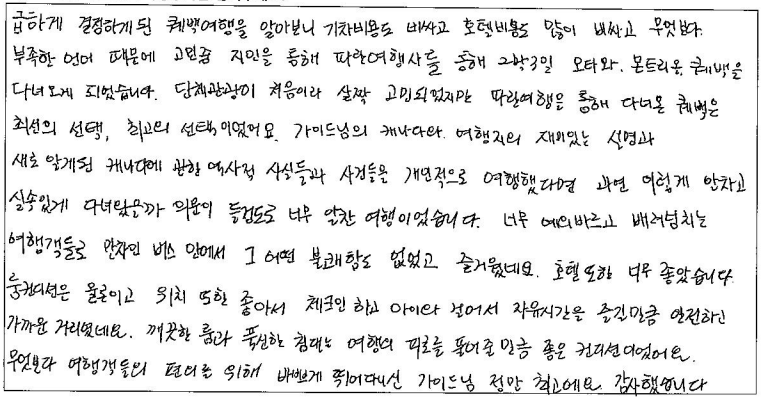 급하게 결정하게 된 퀘백여행을 알아보니 기차비용도 비싸고 호텔비용도 많이 비싸고 무엇보다.
부족한 언어 때문에 고민중 지인을 통해 파란여행사를 통해 2박3일 오타와. 몬트리올, 퀘백을
다녀오게 되었습니다. 단체관광이 처음이라 살짝 고민되었지만 파란여행을 통해 다녀온 퀘백은
최선의 선택, 최고의 선택이었어요. 가이드님의 캐나다와. 여행지의 재미있는 설명과
새로 알게된 캐나다에 관한 역사적 사실들과 사건들을 개인적으로 여행했다면 과연 이렇게 안차고
실속있게 다녀왔을까 의문이 들정도로 너무 알찬 여행이었습니다. 너무 예의바르고 배려넘치는
여행객들로 만차인 버스 안에서 그 어떤 불쾌함도 없었고 즐거웠네요. 호텔 또한 너무 좋았습니다.
룸컨디션은 물론이고 위치 또한 좋아서 체크인 하고 아이와 걸어서 자유시간을 즐길만큼 안전하고
가까운 거리였네요. 깨끗한 룸과 푹신한 침대는 여행의 피로를 풀어준 만큼 좋은 컨디션이었어요.
무엇보다 여행객들의 편의를 위해 바쁘게 뛰어다니신 가이드님 정말 최고에요. 감사했습니다